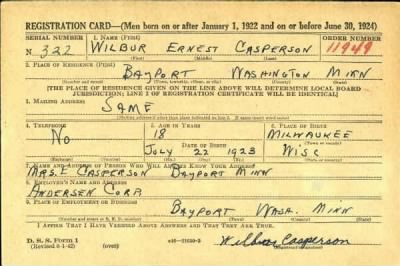 REGISTRATION CARD—(Men born on or after January 1, 1922 and on or before June 30, 1924)
SERIAL NUMBER 1. NAME (Print) ORDER NUMBER
N 322 WILBUR ERNEST CASPERSON 11949
(First) (Middle) (Last)
2. PLACE OF RESIDENCE (Print)
BAYPORT WASHINGTON MINN
(Number and street) (Town, township, village, or city) (County) (State)
[THE PLACE OF RESIDENCE GIVEN ON THE LINE ABOVE WILL DETERMINE LOCAL BOARD
JURISDICTION; LINE 2 OF REGISTRATION CERTIFICATE WILL BE IDENTICAL]
3. MAILING ADDRESS
SAME
[Mailing address if other than place indicated on line 2. If same insert word same]
4. TELEPHONE 5. AGE IN YEARS 6. PLACE OF BIRTH
NO 18 MILWAUKEE
DATE OF BIRTH (Town or county)
JULY 22 1923 WISC
(Exchange) (Number) (Mo.) (Day) (Yr.) (State or country)
7. NAME AND ADDRESS OF PERSON WHO WILL ALWAYS KNOW YOUR ADDRESS
MRS. E CASPERSON BAYPORT MINN
8. EMPLOYER'S NAME AND ADDRESS
ANDERSEN CORP.
9. PLACE OF EMPLOYMENT OR BUSINESS
BAYPORT WASH. MINN
(Number and street or R. F. D. number) (Town) (County) (State)
I AFFIRM THAT I HAVE VERIFIED ABOVE ANSWERS AND THAT THEY ARE TRUE.
D. S. S. Form 1 (over) Wilbur Casperson
(Revised 6-1-42) (Registrant's signature)